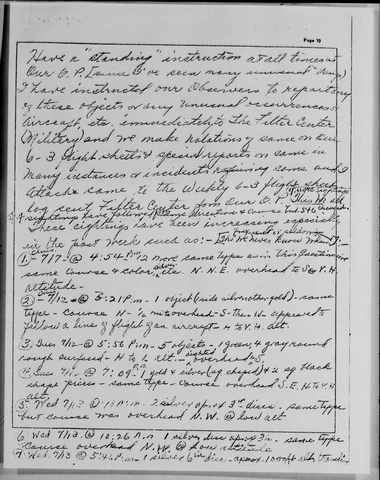 Page 10
Have a "standing" instruction at all times at
Our O.P. I've seen many unusual things
I have instructed our Observers to report any
of these objects or any unusual occurrences or
aircraft, etc. immediately to the Filter Center
(Military) and we make notations of same on Our
6-3 flight sheets & special reports on same in
many instances or incidents requiring same and I
Attach same to the Weekly 6-3 flight
log sent Filter Center from Our O.P.
sightings have followed same direction & Course
These sightings have been increasing especially
in the past week such as:-
1 - 7/12 @ 4:54 P.M. 2 more same type as in this Questionnaire
same course & color, etc. N.N.E. overhead to S
Altitude -
2 - 7/12 - @ 5:21 P.M - 1 object (1 side silver other gold) - same
type - course N - overhead - S. the W. appeared to
follow a line of flight of an aircraft - H. alt.
3. Tues 7/12 - @ 5:56 P.M - 5 objects - 1 green, 4 gray round
rough surfaced - H to L alt. - overhead S.
4. Tues 7/12 - @ 7:09 P.M 1 gold & silver (sq shaped) & 2 sq black
shape pieces - same type - Course overhead S.E.
alt.
5. Wed 7/13 @ P.M - 2 silver 3" disc. same type
but course was overhead N.W. @ low alt
6. Wed 7/13 @ 10:26 P.M 1 silver disc aprox 3 in. - same type
course overhead N.W. @ Low altitude
7. Wed 7/13 @ 5:45 P.M - 1 silver 6 in disc - aprox 1000 ft alt